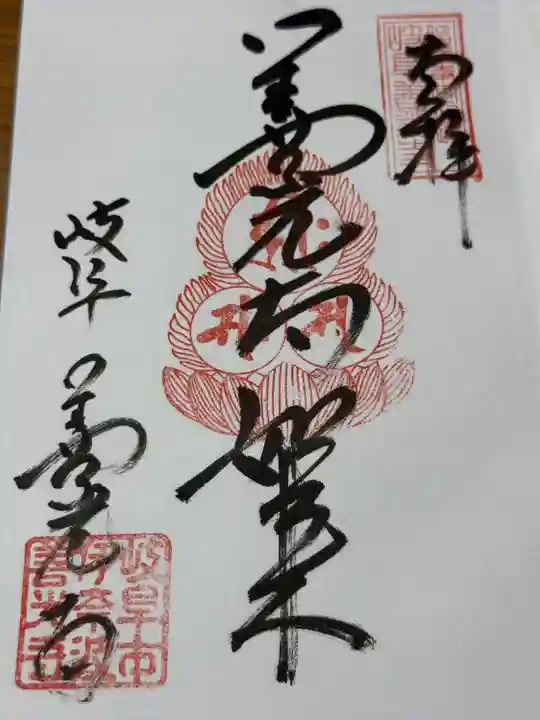 奉拝
善光寺如来
岐阜
善光寺
岐阜市
伊奈波
善光寺